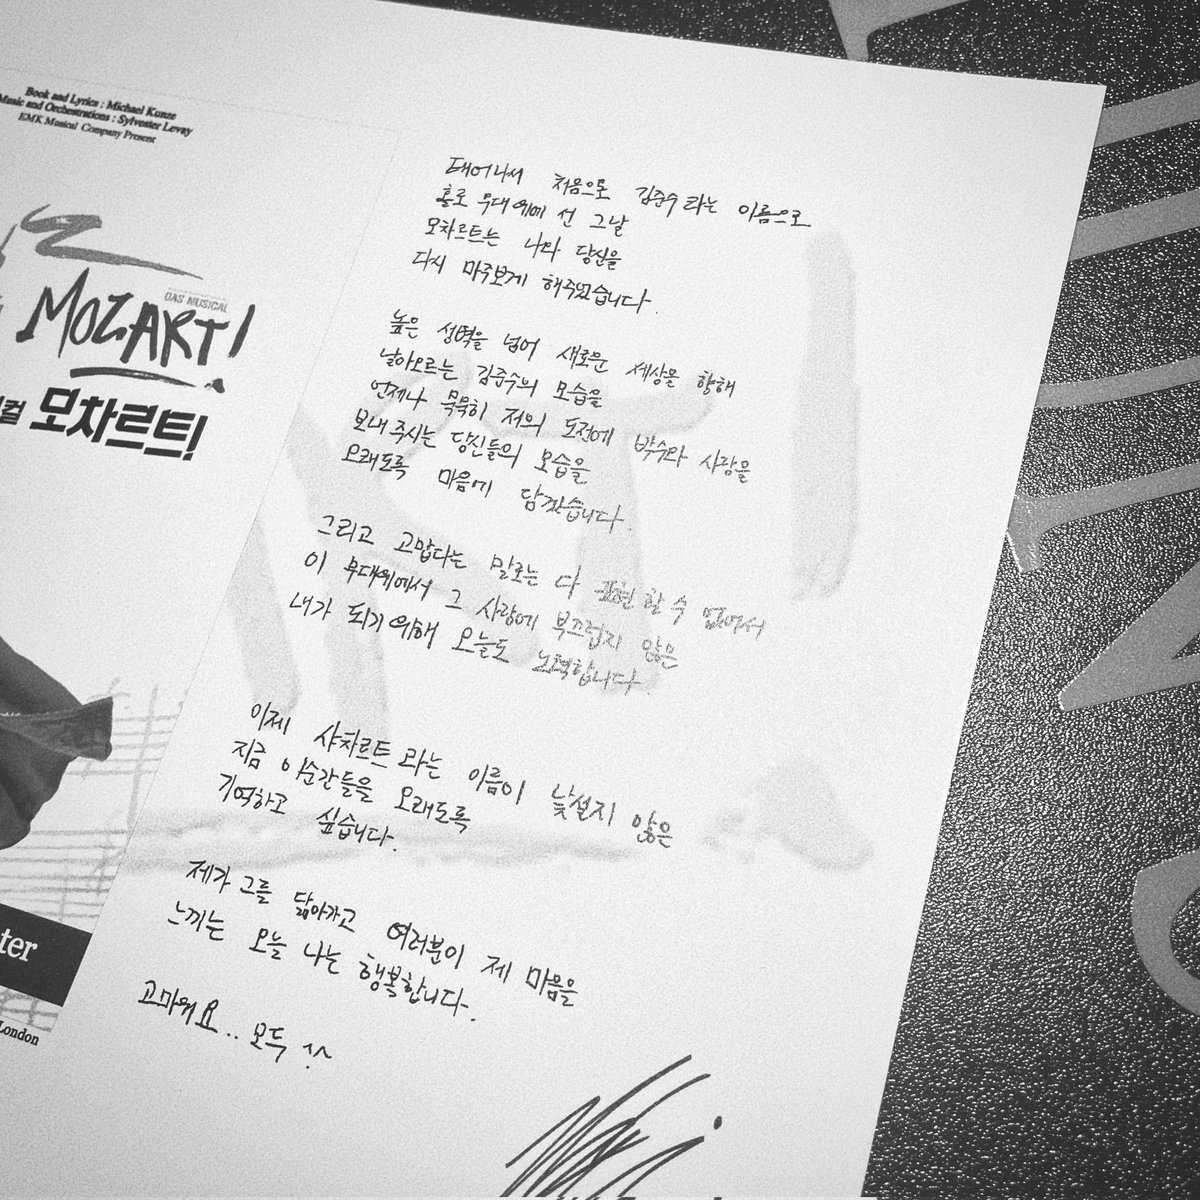 Book and Lyrics : Michael Kunze
Music and Orchestrations : Sylvester Levay
EMK Musical Company Present
DAS MUSICAL
MOZART!
모차르트!
태어나서 처음으로 김준수라는 이름으로
홀로 무대 위에 선 그날
모차르트는 나와 당신을
다시 마주보게 해주었습니다.
높은 성벽을 넘어 새로운 세상을 향해
날아오르는 김준수의 모습을
언제나 묵묵히 저의 도전에 박수와 사랑을
보내주시는 당신들의 모습을
오래도록 마음에 담겠습니다.
그리고 고맙다는 말로는 다 표현 할 수 없어서
이 무대위에서 그 사랑에 부끄럽지 않은
내가 되기위해 오늘도 노력합니다.
이제 샤차르트라는 이름이 낯설지 않은
지금 이순간들을 오래도록
기억하고 싶습니다.
제가 그를 닮아가고 여러분이 제 마음을
느끼는 오늘 나는 행복합니다.
고마워요.. 모두 ^^
ter
London